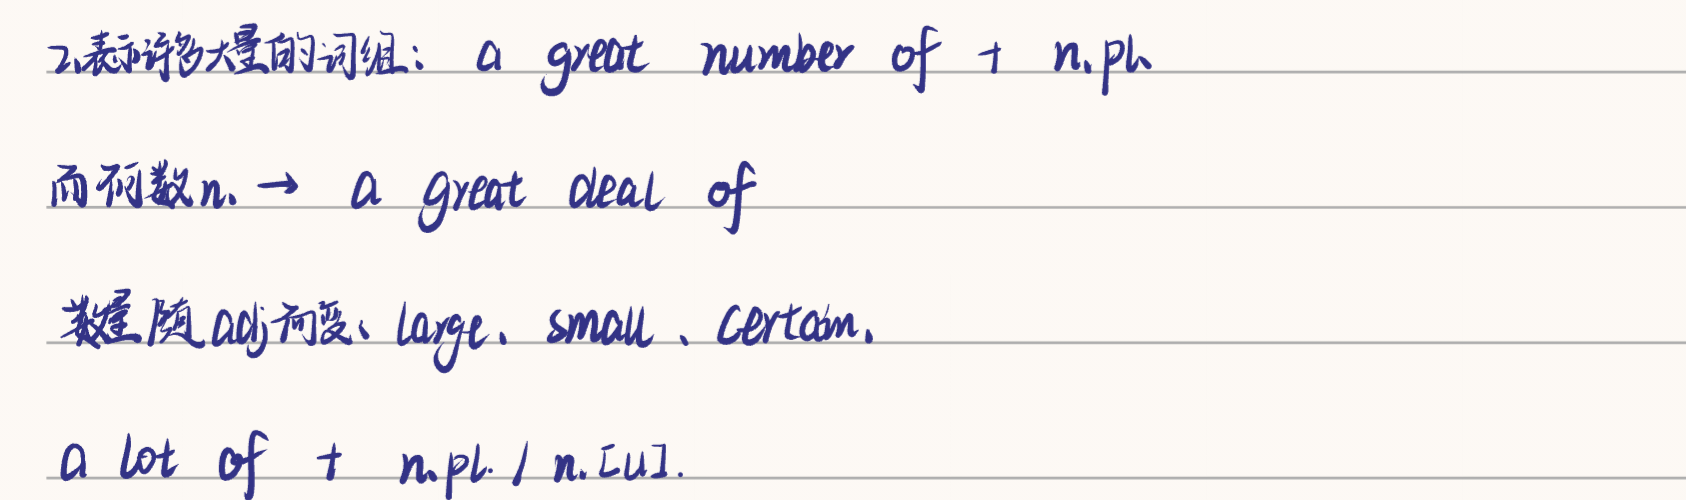 2、表示许多大量的词组: a great number of + n.pl.
而不可数n. → a great deal of
数量随adj而变、large、small、certain.
a lot of + n.pl. / n.[u].